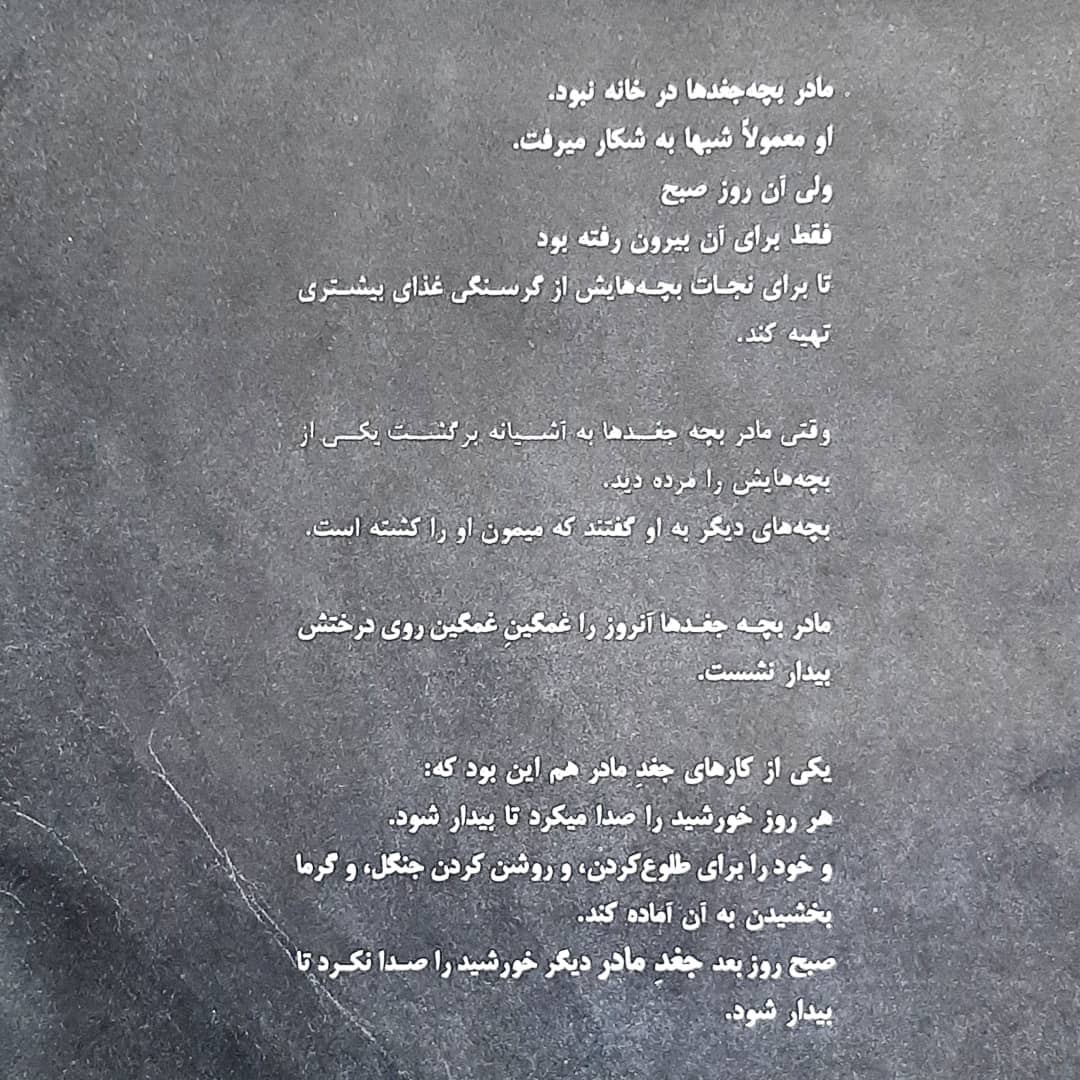 مادر بچه‌جغدها در خانه نبود.
او معمولاً شبها به شکار میرفت.
ولی آن روز صبح
فقط برای آن بیرون رفته بود
تا برای نجات بچه‌هایش از گرسنگی غذای بیشتری
تهیه کند.
وقتی مادر بچه جغدها به آشیانه برگشت یکی از
بچه‌هایش را مرده دید.
بچه‌های دیگر به او گفتند که میمون او را کشته است.
مادر بچه جغدها آنروز را غمگینِ غمگین روی درختش
بیدار نشست.
یکی از کارهای جغدِ مادر هم این بود که:
هر روز خورشید را صدا میکرد تا بیدار شود.
و خود را برای طلوع‌کردن، و روشن کردن جنگل، و گرما
بخشیدن به آن آماده کند.
صبح روز بعد جغدِ مادر دیگر خورشید را صدا نکرد تا
بیدار شود.